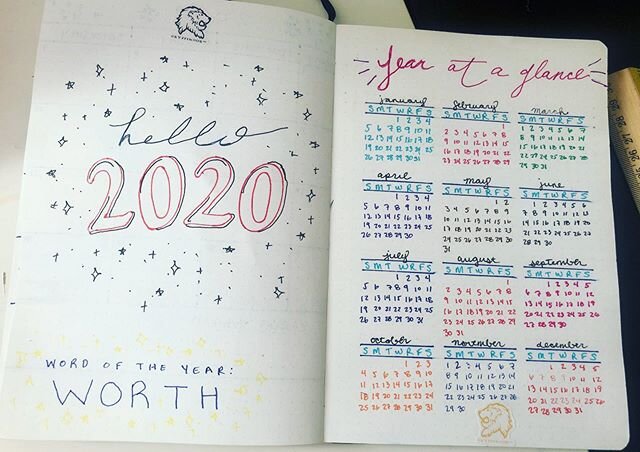 hello
2020
WORD OF THE YEAR:
WORTH
Year at a glance
january
S M T W R F S
1 2 3 4
5 6 7 8 9 10 11
12 13 14 15 16 17 18
19 20 21 22 23 24 25
26 27 28 29 30 31
february
S M T W R F S
1
2 3 4 5 6 7 8
9 10 11 12 13 14 15
16 17 18 19 20 21 22
23 24 25 26 27 28 29
march
S M T W R F S
1 2 3 4 5 6 7
8 9 10 11 12 13 14
15 16 17 18 19 20 21
22 23 24 25 26 27 28
29 30 31
april
S M T W R F S
1 2 3 4
5 6 7 8 9 10 11
12 13 14 15 16 17 18
19 20 21 22 23 24 25
26 27 28 29 30
may
S M T W R F S
1 2
3 4 5 6 7 8 9
10 11 12 13 14 15 16
17 18 19 20 21 22 23
24 25 26 27 28 29 30
31
june
S M T W R F S
1 2 3 4 5 6
7 8 9 10 11 12 13
14 15 16 17 18 19 20
21 22 23 24 25 26 27
28 29 30
july
S M T W R F S
1 2 3 4
5 6 7 8 9 10 11
12 13 14 15 16 17 18
19 20 21 22 23 24 25
26 27 28 29 30 31
august
S M T W R F S
1
2 3 4 5 6 7 8
9 10 11 12 13 14 15
16 17 18 19 20 21 22
23 24 25 26 27 28 29
30 31
september
S M T W R F S
1 2 3 4 5
6 7 8 9 10 11 12
13 14 15 16 17 18 19
20 21 22 23 24 25 26
27 28 29 30
october
S M T W R F S
1 2 3
4 5 6 7 8 9 10
11 12 13 14 15 16 17
18 19 20 21 22 23 24
25 26 27 28 29 30 31
november
S M T W R F S
1 2 4 5 6 7
8 9 10 11 12 13 14
15 16 17 18 19 20 21
22 23 24 25 26 27 28
29 30
december
S M T W R F S
1 2 3 4 5
6 7 8 9 10 11 12
13 14 15 16 17 18 19
20 21 22 23 24 25 26
27 28 29 30 31